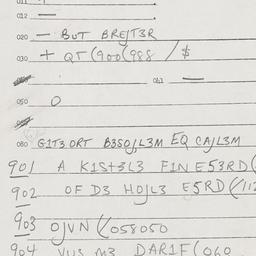 012 —
020 — BUT BREJT3R
030 + QT(900(988 / $
061 —
050 O
080 G1T3 ORT B3SOJLL3M EQ CAJL3M
901 A K1ST3L3 FINE53RD(
902 OF D3 HOJL3 E5RD(/112
903 OJVN(/058050
904 VUS M3 DAR1F(060